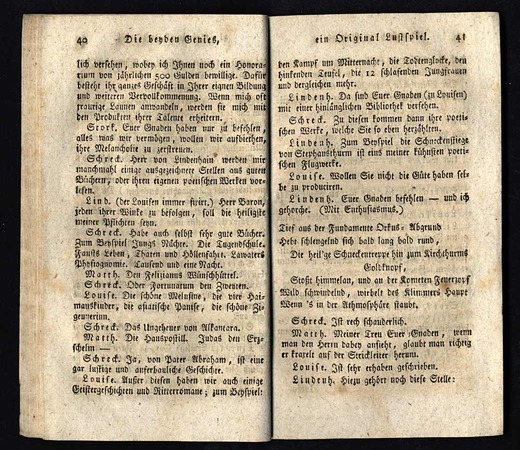 40 Die beyden Genies,
lich versehen, wobey ich Ihnen noch ein Honora-
rium von jährlichen 500 Gulden bewillige. Dafür
besteht ihr ganzes Geschäft in Ihrer eignen Bildung
und weiteren Vervollkommnung. Wenn mich oft
traurige Launen anwandeln, werden sie mich mit
den Produkten ihrer Talente erheitern.
Stork. Euer Gnaden haben nur zu befehlen,
alles was wir vermögen, wollen wir aufbiethen,
ihre Melancholie zu zerstreuen.
Schreck. Herr von Lindenhain werden mir
manchmal einige ausgezeichnete Stellen aus guten
Büchern, oder ihren eigenen poetischen Werken vor-
lesen.
Lind. (der Louisen immer fixirt.) Herr Baron,
jeden ihrer Winke zu befolgen, soll die heiligste
meiner Pflichten seyn.
Schreck. Habe auch selbst sehr gute Bücher.
Zum Beyspiel Jungs Nächte. Die Tugendschule.
Fausts Leben, Thaten und Höllenfahrt. Lawaters
Physiognomie. Tausend und eine Nacht.
Matth. Den Felizianus Wünschhüttel.
Schreck. Oder Fortunatum den Zweyten.
Louise. Die schöne Melusine, die vier Hai-
manskinder, die asiatische Banise, die schöne Zi-
geunerinn.
Schreck. Das Ungeheuer von Alkantara.
Matth. Die Hauspostill. Judas den Erz-
schelm —
Schreck. Ja, von Pater Abraham, ist eine
gar lustige und auferbauliche Geschichte.
Louise. Außer diesen haben wir auch einige
Geistergeschichten und Ritterromane; zum Beyspiel:
ein Original Lustspiel. 41
den Kampf um Mitternacht, die Todtenglocke, den
hinkenden Teufel, die 12 schlafenden Jungfrauen
und dergleichen mehr.
Lindenh. Da sind Euer Gnaden (zu Louisen)
mit einer hinlänglichen Bibliothek versehen.
Schreck. Zu diesen kommen dann ihre poeti-
schen Werke, welche Sie so eben herzählten.
Lindenh. Zum Beyspiel die Schneckenstiege
von Stephansthurm ist eins meiner kühnsten poeti-
schen Flugwerke.
Louise. Wollen Sie nicht die Güte haben sel-
be zu produciren.
Lindenh. Euer Gnaden befehlen — und ich
gehorche. (Mit Enthusiasmus.)
Tief aus der Fundamente Orkus- Abgrund
Hebt schlengelnd sich bald lang bald rund,
Die heil'ge Schneckentreppe hin zum Kirchthurms
Goldknopf,
Stoßt himmelan, und an der Kometen Feuerzopf
Wild schwindelnd, wirbelt des Klimmers Haupt
Wenn 's in der Athmosphäre staubt.
Schreck. Ist rech schauderlich.
Matth. Meiner Treu Euer Gnaden, wenn
man den Herrn dabey ansieht, glaubt man richtig
er kraxelt auf der Strickleiter herum.
Louise. Ist sehr erhaben geschrieben.
Lindenh. Hiezu gehört noch diese Stelle: